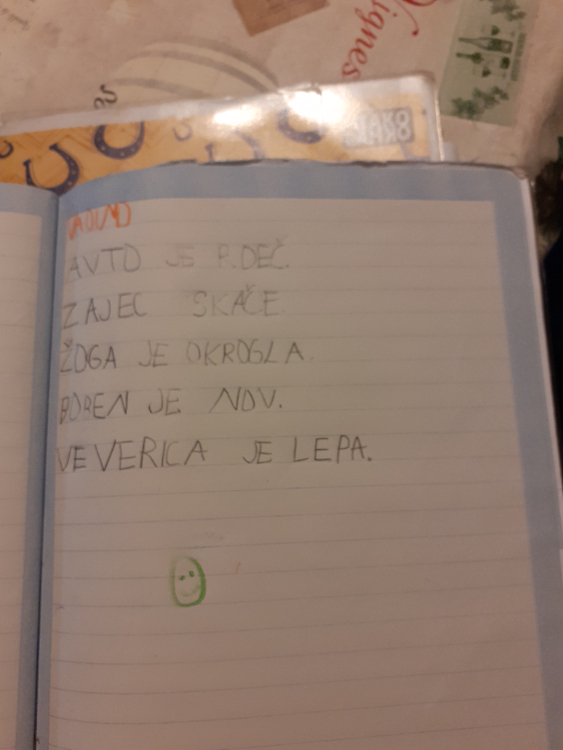 Vignes
AVTO JE RDEČ.
ZAJEC SKAČE.
ŽOGA JE OKROGLA.
JE NOV.
VEVERICA JE LEPA.